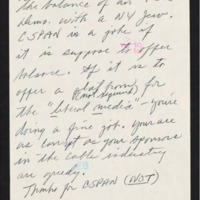 the balance of
Dems. with a NY Jew.
CSPAN is a joke if
it is suppose to offer
balance. If it is to
offer a platform for
(not squired)
the "liberal media" - you're
doing a fine job. You are
as corrupt as your sponsors
in the cable industry
are greedy.
Thanks for CSPAN (NOT)